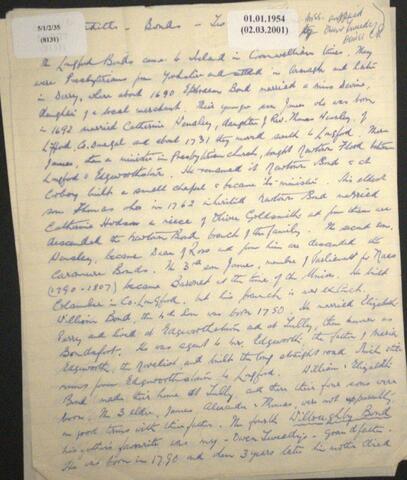 5/1/2/35
(8131)
01.01.1954
(02.03.2001)
Bonds
The Longford Bonds came to Ireland in Cromwellian times. They
were Presbyterians from Yorkshire and settled in Armagh and later
in Derry, where about 1690 Bond married a Miss Devine,
daughter of a local merchant. Their younger son James who was born
in 1692 married Catherine Hensley, daughter of Rev. Thomas Hensley, of
Lifford, Co. Donegal and about 1731 they moved south to Longford. There
James, then a minister in Presbyterian church, bought Newtown Flood between
Longford & Edgeworthstown. He renamed it Newtown Bond & at
Corboy built a small chapel & became its minister. His eldest
son Thomas who in 1762 inherited Newtown Bond married
Catherine Hodson a niece of Oliver Goldsmith and from them are
descended the Newtown Bond branch of the family. The second son,
Hensley, became Dean of Ross and from him are descended the
Bonds. The 3rd son James, member of Parliament for Naas
(1790-1807) became Baronet at the time of the Union. He built
in Co. Longford, but his branch is now extinct.
William Bond the 4th son was born 1750. He married Elizabeth
Perry and lived at Edgeworthstown and at Tully, then known as
He was agent to Mr. Edgeworth, the father of Maria
Edgeworth, the novelist and built the long straight road which still
runs from Edgeworthstown to Longford. William & Elizabeth
Bond made their home at Tully, and there their five sons were
born. The 3 elder, James, Alexander & Thomas, were not apparently
on good terms with their father. The fourth Willoughby Bond
his father's favourite was my - Owen Tweedy's - Grandfather.
He was born in 1790 and when 3 years later his mother died